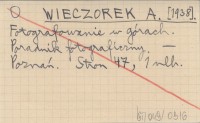 WIECZOREK A. [1938].
Fotografowanie w górach.
Poradnik fotograficzny. —
Poznań. Stron 47, 1 nlb.